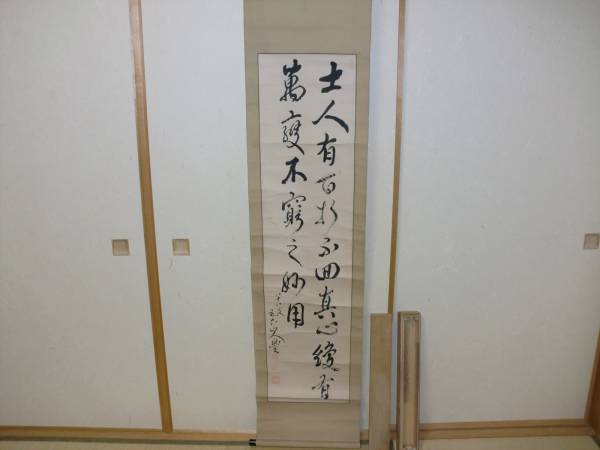 士人有百折不回真心纔有
萬變不窮之妙用